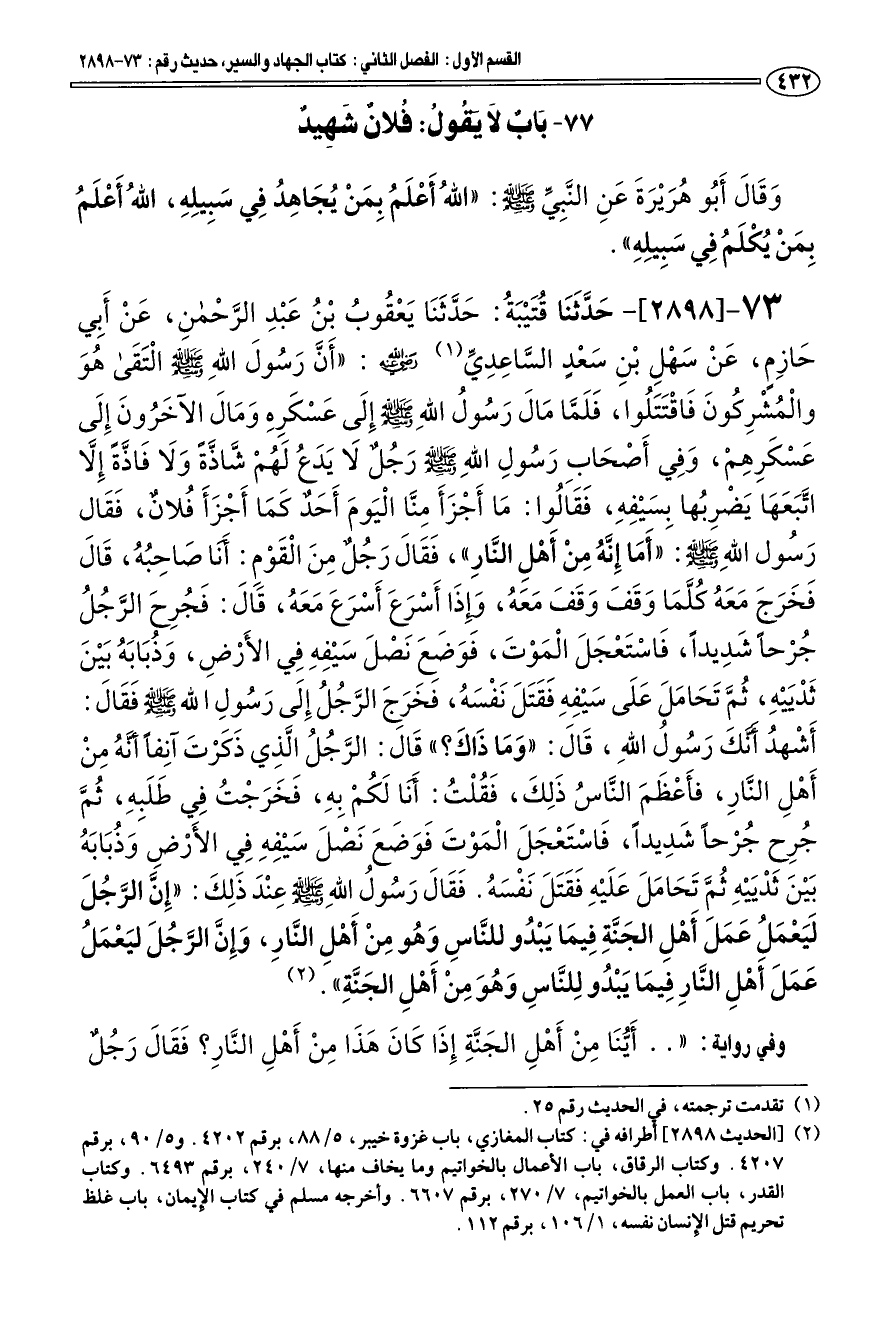 القسم الأول: الفصل الثاني: كتاب الجهاد والسير، حديث رقم: ٧٣-٢٨٩٨
٤٣٢
٧٧- بَابٌ لَا يَقُولُ: فُلانٌ شَهِيدٌ
وَقَالَ أَبُو هُرَيْرَةَ عَنِ النَّبِيِّ ﷺ: «اللهُ أَعْلَمُ بِمَنْ يُجَاهِدُ فِي سَبِيلِهِ، اللهُ أَعْلَمُ
بِمَنْ يُكْلَمُ فِي سَبِيلِهِ».
٧٣-[٢٨٩٨]- حَدَّثَنَا قُتَيْبَةُ: حَدَّثَنَا يَعْقُوبُ بْنُ عَبْدِ الرَّحْمٰنِ، عَنْ أَبِي
حَازِمٍ، عَنْ سَهْلِ بْنِ سَعْدٍ السَّاعِدِيِّ(١) رضي الله عنه : «أَنَّ رَسُولَ اللهِ ﷺ الْتَقَىٰ هُوَ
والْمُشْرِكُونَ فَاقْتَتَلُوا، فَلَمَّا مَالَ رَسُولُ اللهِ ﷺ إِلَى عَسْكَرِهِ وَمَالَ الآخَرُونَ إِلَى
عَسْكَرِهِمْ، وَفِي أَصْحَابِ رَسُولِ اللهِ ﷺ رَجُلٌ لَا يَدَعُ لَهُمْ شَاذَّةً وَلَا فَاذَّةً إِلَّا
اتَّبَعَهَا يَضْرِبُها بِسَيْفِهِ، فَقَالُوا: مَا أَجْزَأَ مِنَّا الْيَومَ أَحَدٌ كَمَا أَجْزَأَ فُلانٌ، فَقَال
رَسُول اللهِ ﷺ: «أَمَا إِنَّهُ مِنْ أَهْلِ النَّارِ»، فَقَالَ رَجُلٌ مِنَ الْقَوْمِ: أَنَا صَاحِبُهُ، قَالَ
فَخَرَجَ مَعَهُ كُلَّمَا وَقَفَ وَقَفَ مَعَهُ، وَإِذَا أَسْرَعَ أَسْرَعَ مَعَهُ، قَالَ: فَجُرِحَ الرَّجُلُ
جُرْحاً شَدِيداً، فَاسْتَعْجَلَ الْمَوْتَ، فَوَضَعَ نَصْلَ سَيْفِهِ فِي الأَرْضِ، وَذُبَابَهُ بَيْنَ
ثَدْيَيْهِ، ثُمَّ تَحَامَلَ عَلَى سَيْفِهِ فَقَتَلَ نَفْسَهُ، فَخَرَجَ الرَّجُلُ إِلَى رَسُولِ اللهِ ﷺ فَقَالَ:
أَشْهدُ أَنَّكَ رَسُولُ اللهِ ، قَالَ: «وَمَا ذَاكَ؟» قَالَ: الرَّجُلُ الَّذِي ذَكَرْتَ آنِفاً أَنَّهُ مِنْ
أَهْلِ النَّارِ، فأَعْظَمَ النَّاسُ ذَلِكَ، فَقُلْتُ: أَنَا لَكُمْ بِهِ، فَخَرَجْتُ فِي طَلَبِهِ، ثُمَّ
جُرِح جُرْحاً شَدِيداً، فَاسْتَعْجَلَ الْمَوْتَ فَوَضَعَ نَصْلَ سَيْفِهِ فِي الأَرْضِ وَذُبَابَهُ
بَيْنَ ثَدْيَيْهِ ثُمَّ تَحَامَلَ عَلَيْهِ فَقَتَلَ نَفْسَهُ. فَقَالَ رَسُولُ اللهِ ﷺ عِنْدَ ذَلِكَ: «إِنَّ الرَّجُلَ
لَيَعْمَلُ عَمَلَ أَهْلِ الجَنَّةِ فِيمَا يَبْدُو للنَّاسِ وَهُو مِنْ أَهْلِ النَّارِ، وَإِنَّ الرَّجُلَ لَيَعْمَلُ
عَمَلَ أَهْلِ النَّارِ فِيمَا يَبْدُو لِلنَّاسِ وَهُوَ مِنْ أَهْلِ الجَنَّةِ».(٢)
وفي رواية: «.. أَيُّنَا مِنْ أَهْلِ الجَنَّةِ إِذَا كَانَ هَذَا مِنْ أَهْلِ النَّارِ؟ فَقَالَ رَجُلٌ
(١) تقدمت ترجمته، في الحديث رقم ٢٥.
(٢) [الحديث ٢٨٩٨] أطرافه في: كتاب المغازي، باب غزوة خيبر، ٥/ ٨٨، برقم ٤٢٠٢. و٥/ ٩٠، برقم
٤٢٠٧. وكتاب الرقاق، باب الأعمال بالخواتيم وما يخاف منها، ٧/ ٢٤٠، برقم ٦٤٩٣. وكتاب
القدر، باب العمل بالخواتيم، ٧/ ٢٧٠، برقم ٦٦٠٧. وأخرجه مسلم في كتاب الإيمان، باب غلظ
تحريم قتل الإنسان نفسه، ١/ ١٠٦، برقم ١١٢.